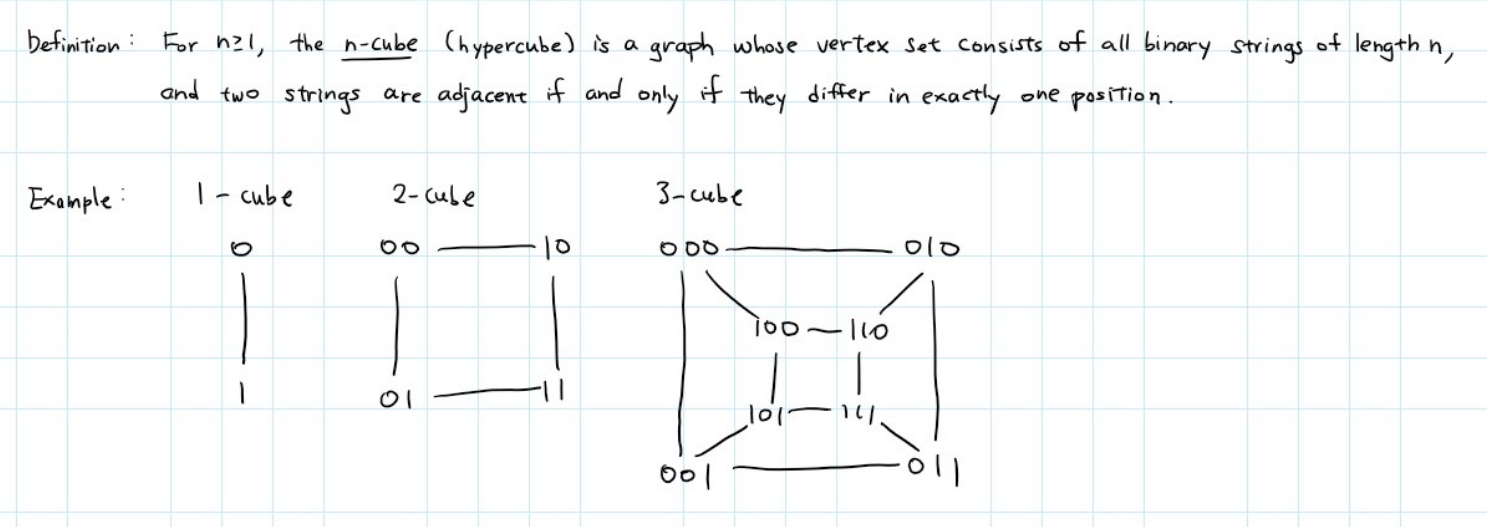 Definition: For n≥1, the n-cube (hypercube) is a graph whose vertex set consists of all binary strings of length n,
and two strings are adjacent if and only if they differ in exactly one position.
Example: 1-cube 2-cube 3-cube
0 00 10 000 010
100 110
1 01 11 101 111
001 011